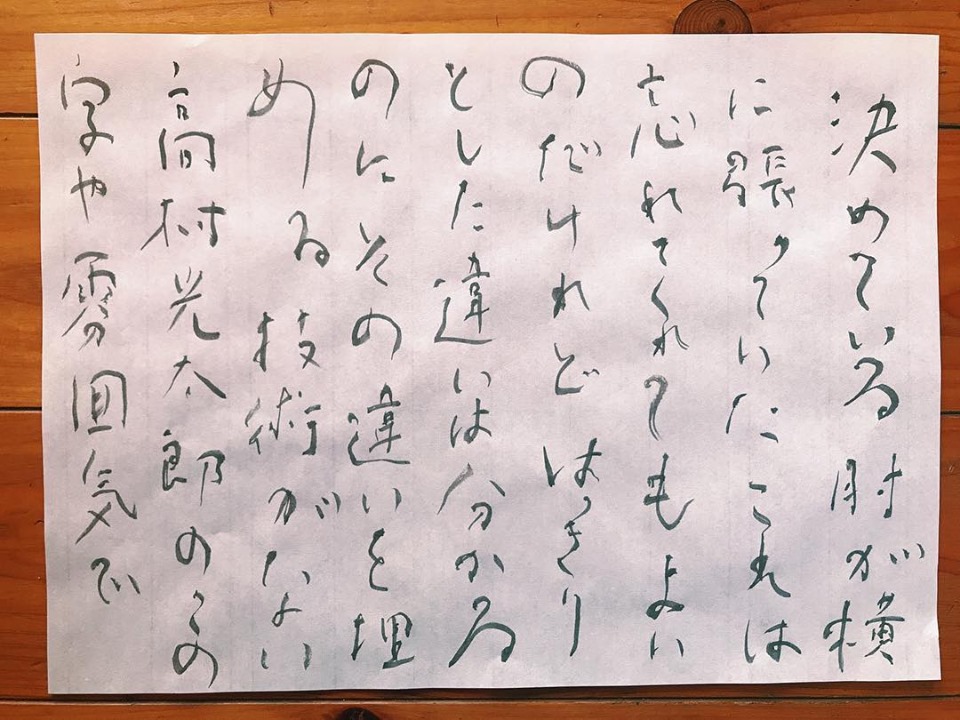 決めている肘が横
に張っていたこれは
忘れてくれてもよい
のだけれどはっきり
とした違いは分かる
のにその違いを埋
める技術がない
高村光太郎のこの
字や雰囲気で